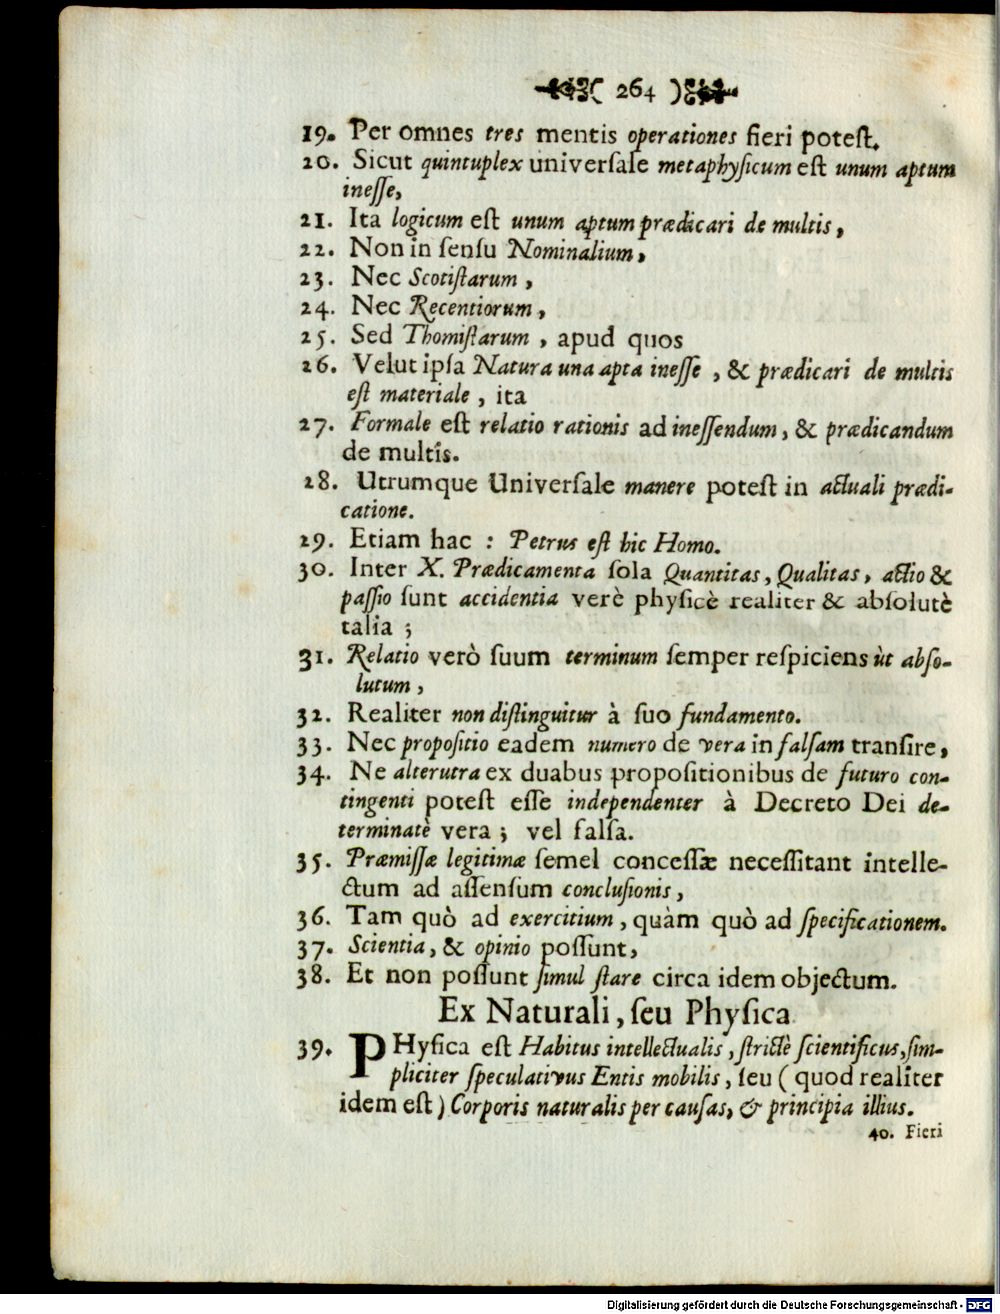 ( 264 )
19. Per omnes tres mentis operationes fieri poteſt.
20. Sicut quintuplex univerſale metaphyſicum eſt unum aptum
ineſſe,
21. Ita logicum eſt unum aptum prædicari de multis,
22. Non in ſenſu Nominalium,
23. Nec Scotiſtarum,
24. Nec Recentiorum,
25. Sed Thomiſtarum, apud quos
26. Velut ipſa Natura una apta ineſſe, & prædicari de multis
eſt materiale, ita
27. Formale eſt relatio rationis ad ineſſendum, & prædicandum
de multis.
28. Utrumque Univerſale manere poteſt in actuali prædi-
catione.
29. Etiam hac : Petrus eſt hic Homo.
30. Inter X. Prædicamenta ſola Quantitas, Qualitas, actio &
paſſio ſunt accidentia verè phyſicè realiter & abſolutè
talia;
31. Relatio verò ſuum terminum ſemper reſpiciens ùt abſo-
lutum,
32. Realiter non diſtinguitur à ſuo fundamento.
33. Nec propoſitio eadem numero de vera in falſam tranſire,
34. Ne alterutra ex duabus propoſitionibus de futuro con-
tingenti poteſt eſſe independenter à Decreto Dei de-
terminatè vera; vel falſa.
35. Præmiſſæ legitimæ ſemel conceſſæ neceſſitant intelle-
ctum ad aſſenſum concluſionis,
36. Tam quò ad exercitium, quàm quò ad ſpecificationem.
37. Scientia, & opinio poſſunt,
38. Et non poſſunt ſimul ſtare circa idem objectum.
Ex Naturali, ſeu Phyſica
39. PHyſica eſt Habitus intellectualis, ſtrictè ſcientificus, ſim-
pliciter ſpeculativus Entis mobilis, ſeu (quod realiter
idem eſt) Corporis naturalis per cauſas, & principia illius.
40. Fieri
Digitalisierung gefördert durch die Deutsche Forschungsgemeinschaft - DFG